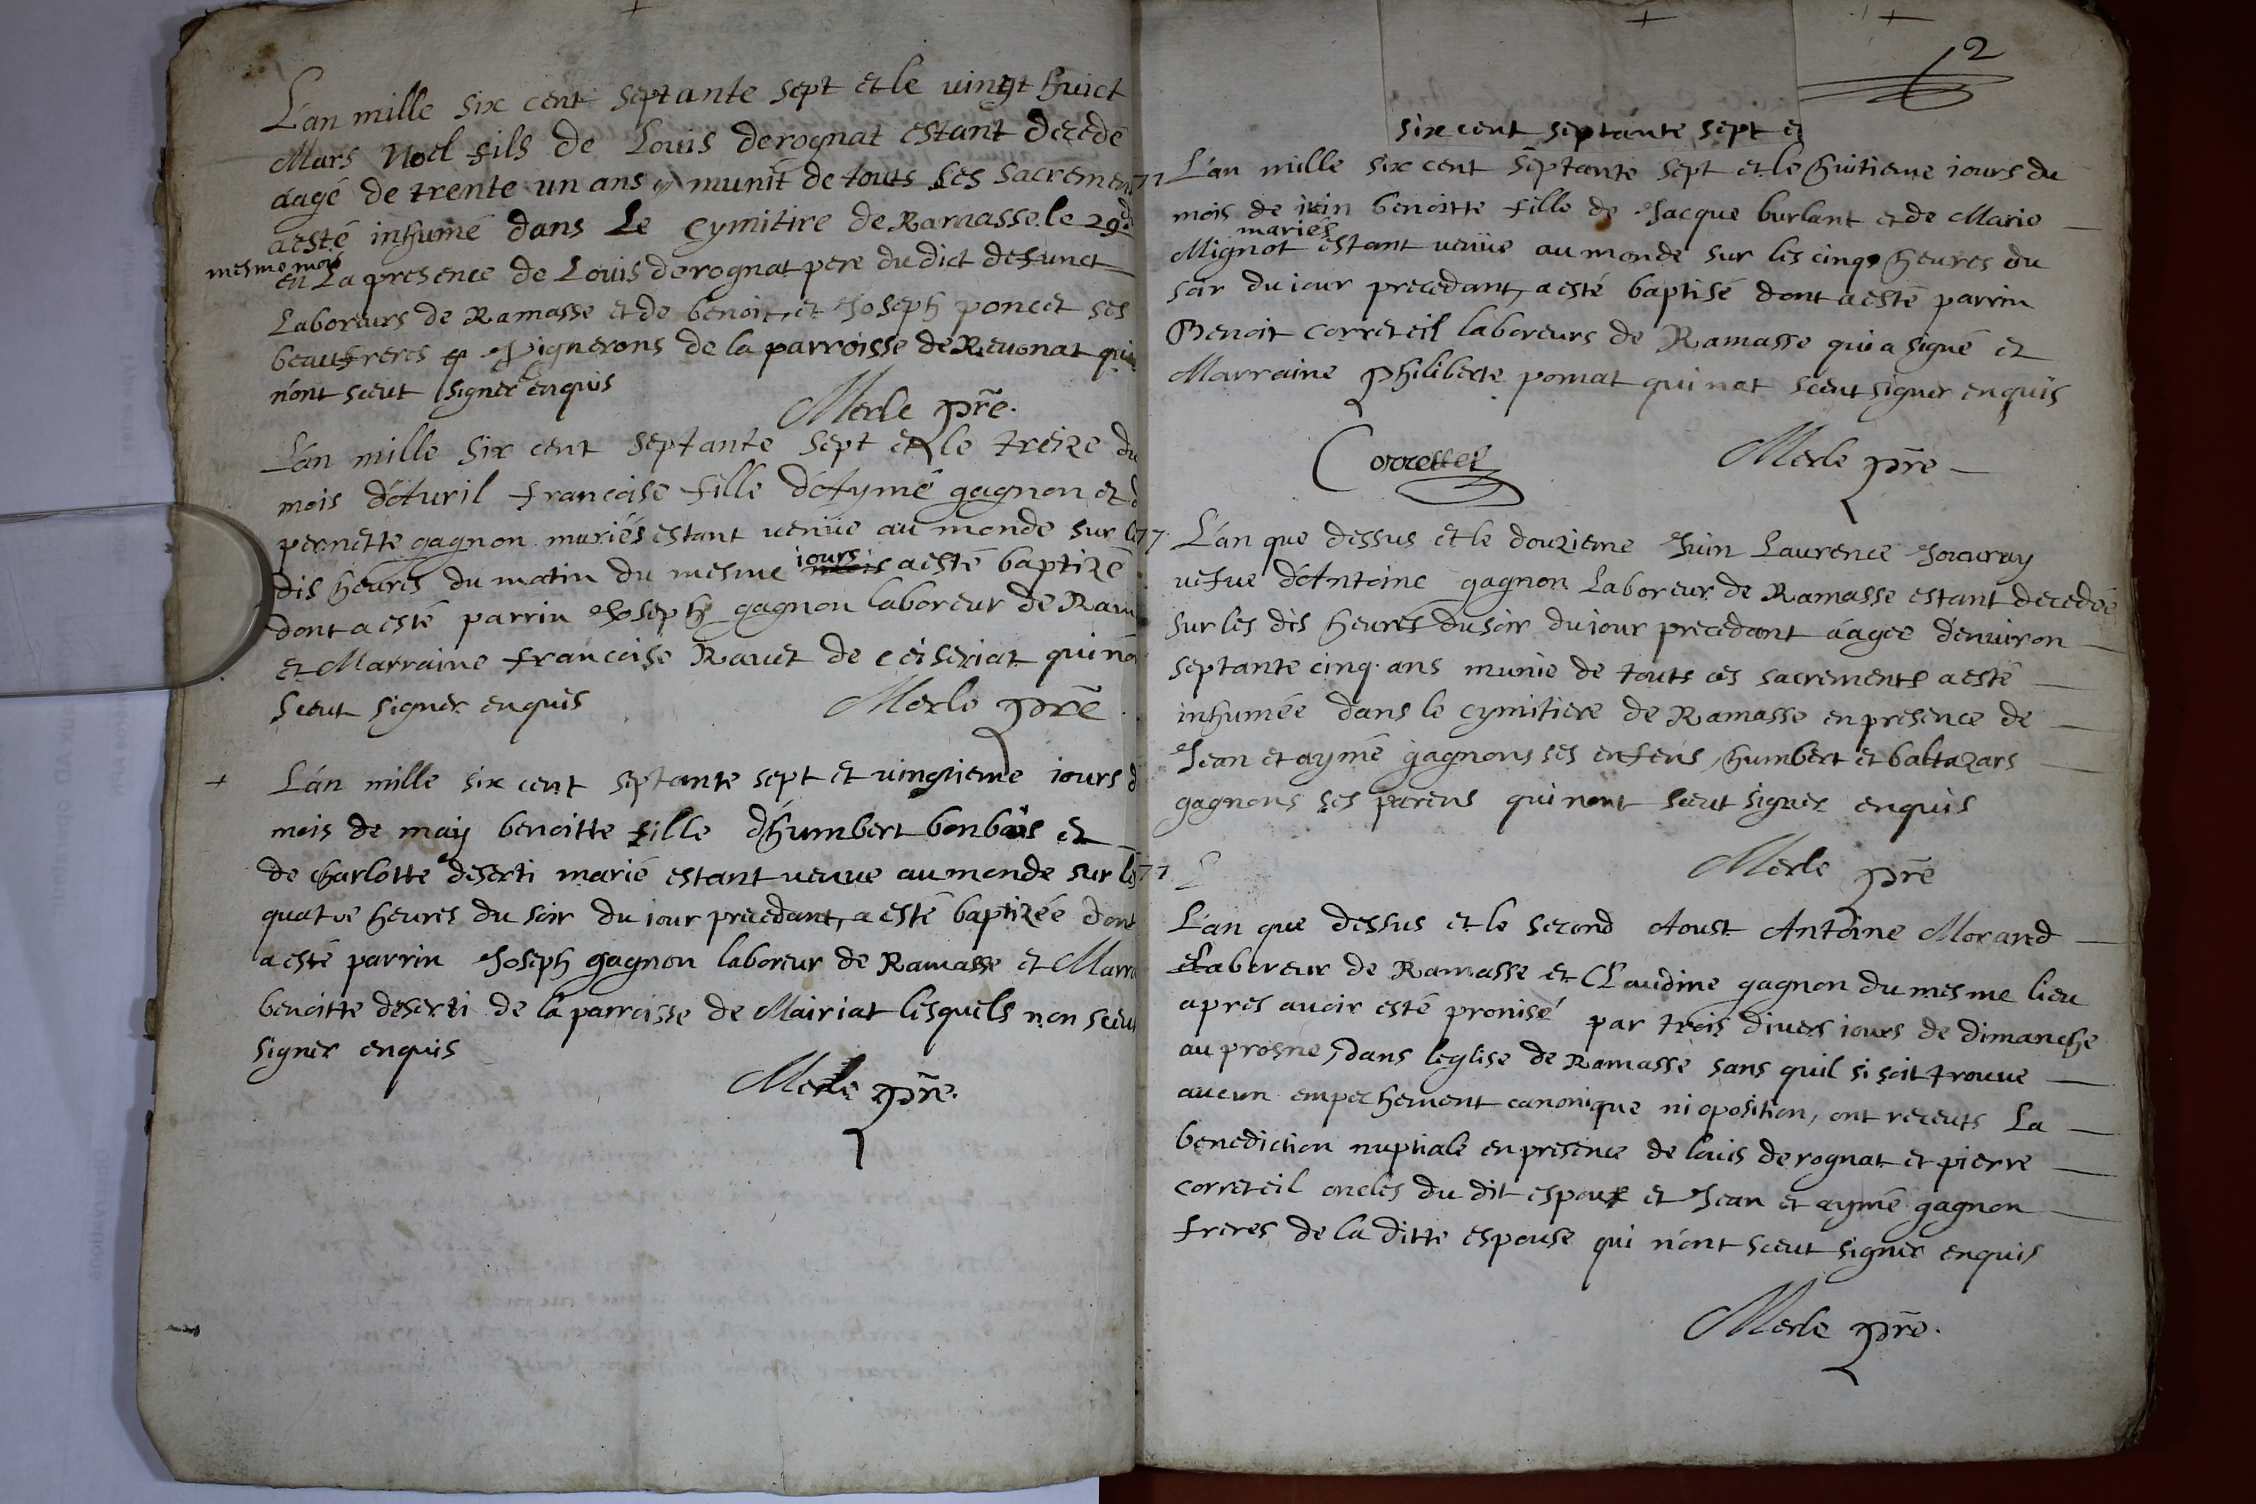 L'an mille six cent septante sept et le vingt huict
Mars Noel fils de Louis derognat estant decedé
aagé de trente un ans munit de touts ses sacremen
a esté inhumé dans Le cymitire de Ramasse le 29e d
mesme mois
en La presence de Louis derognat pere du dict defunct
Laboreurs de Ramasse et de benoit et Joseph poncet ses
beaufreres Vignerons de la parroisse de Reuonat qui
n'ont sceut signer enquis
Merle pre.
L'an mille six cent septante sept et le treize du
mois d'Auril francoise fille d'Aymé gagnon et d
pernette gagnon mariés estant venüe au monde sur le
dis heures du matin du mesme jours a esté baptizé
dont a esté parrin Joseph gagnon laboreur de Ram
et Marraine francoise Rauet de ceiseriat qui n'o
sceut signer enquis
Merle pre
+ L'an mille six cent septante sept et vingtieme iours d
mois de maij benoitte fille d'humbert bonbois et
de charlotte deserti marié estant venue au monde sur le
quatre heures du soir du iour precedant, a esté baptizée dont
a esté parrin Joseph gagnon laboreur de Ramasse et Marra
benoitte deserti de la parroisse de Mairiat lesquels non sceut
signer enquis
Merle pre.
2
six cent septante sept et
77 L'an mille six cent septante sept et le huitieme iours du
mois de iuin benoitte fille de Jacque burlant et de Marie
mariés
Mignot estant venüe au monde sur les cinqs heures du
soir du iour precedant, a esté baptisé dont a esté parrin
Benoit correteil laboreurs de Ramasse qui a signé et
Marraine philiberte pomat qui nat sceut signer enquis
Corretteil
Merle pre
77. L'an que dessus et le douzieme Juin Laurence Jouuray
vefve d'Antoine gagnon Laboreur de Ramasse estant decedée
sur les dis heures du soir du iour precedant aagee d'enuiron
septante cinq ans munie de touts ces sacrements a esté
inhumée dans le cymitiere de Ramasse en presence de
Jean et aymé gagnons ses enfens, humbert et baltazars
gagnons ses parens qui nont sceut signer enquis
Merle pre
77
L'an que dessus et le second Aoust Antoine Morard
Laboreur de Ramasse et Claudine gagnon du mesme lieu
apres auoir esté pronisé par trois diuers iours de dimanche
au prosne, dans leglise de Ramasse sans quil si soit trouue
aucun empechement canonique ni oposition, ont receuts La
benediction nuptiale en presence de louis derognat et pierre
correteil oncles du dit espoux et Jean et aymé gagnon
freres de la ditte espouse qui n'ont sceut signer enquis
Merle pre.